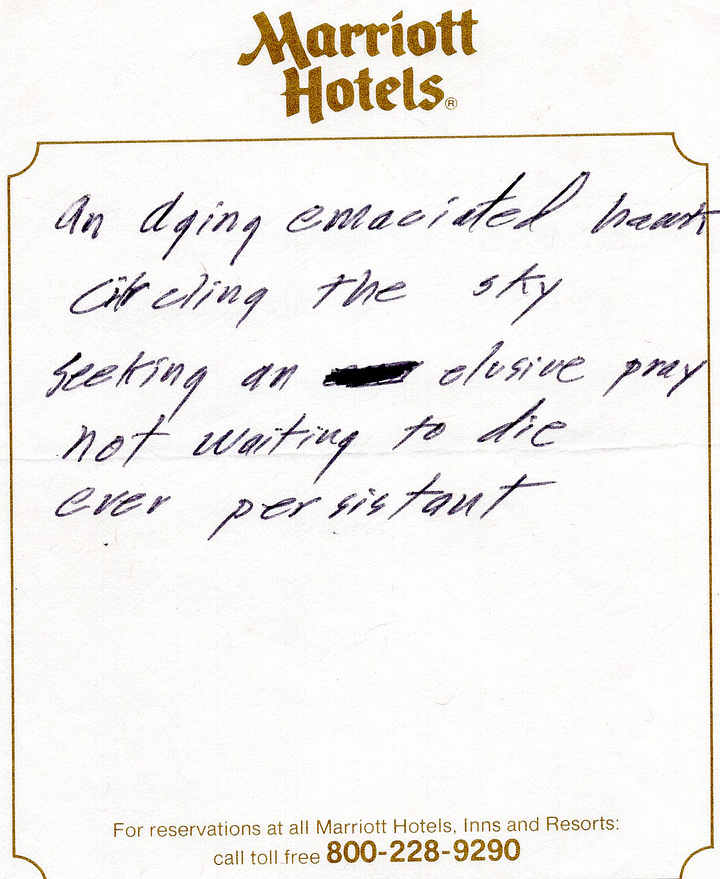 Marriott
Hotels®
An dying emaciated
Circling the sky
Seeking an elusive pray
not waiting to die
ever persistant
For reservations at all Marriott Hotels, Inns and Resorts:
call toll free 800-228-9290